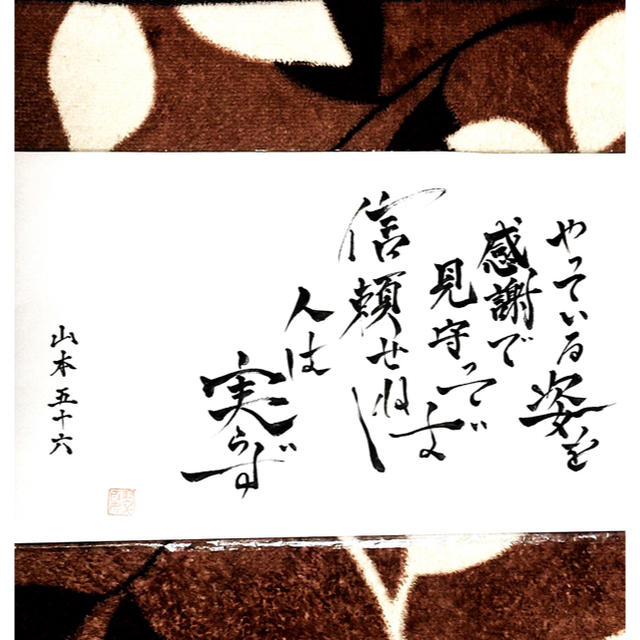 やっている姿を
感謝で
見守って
信頼せねば
人は
実らず
山本五十六